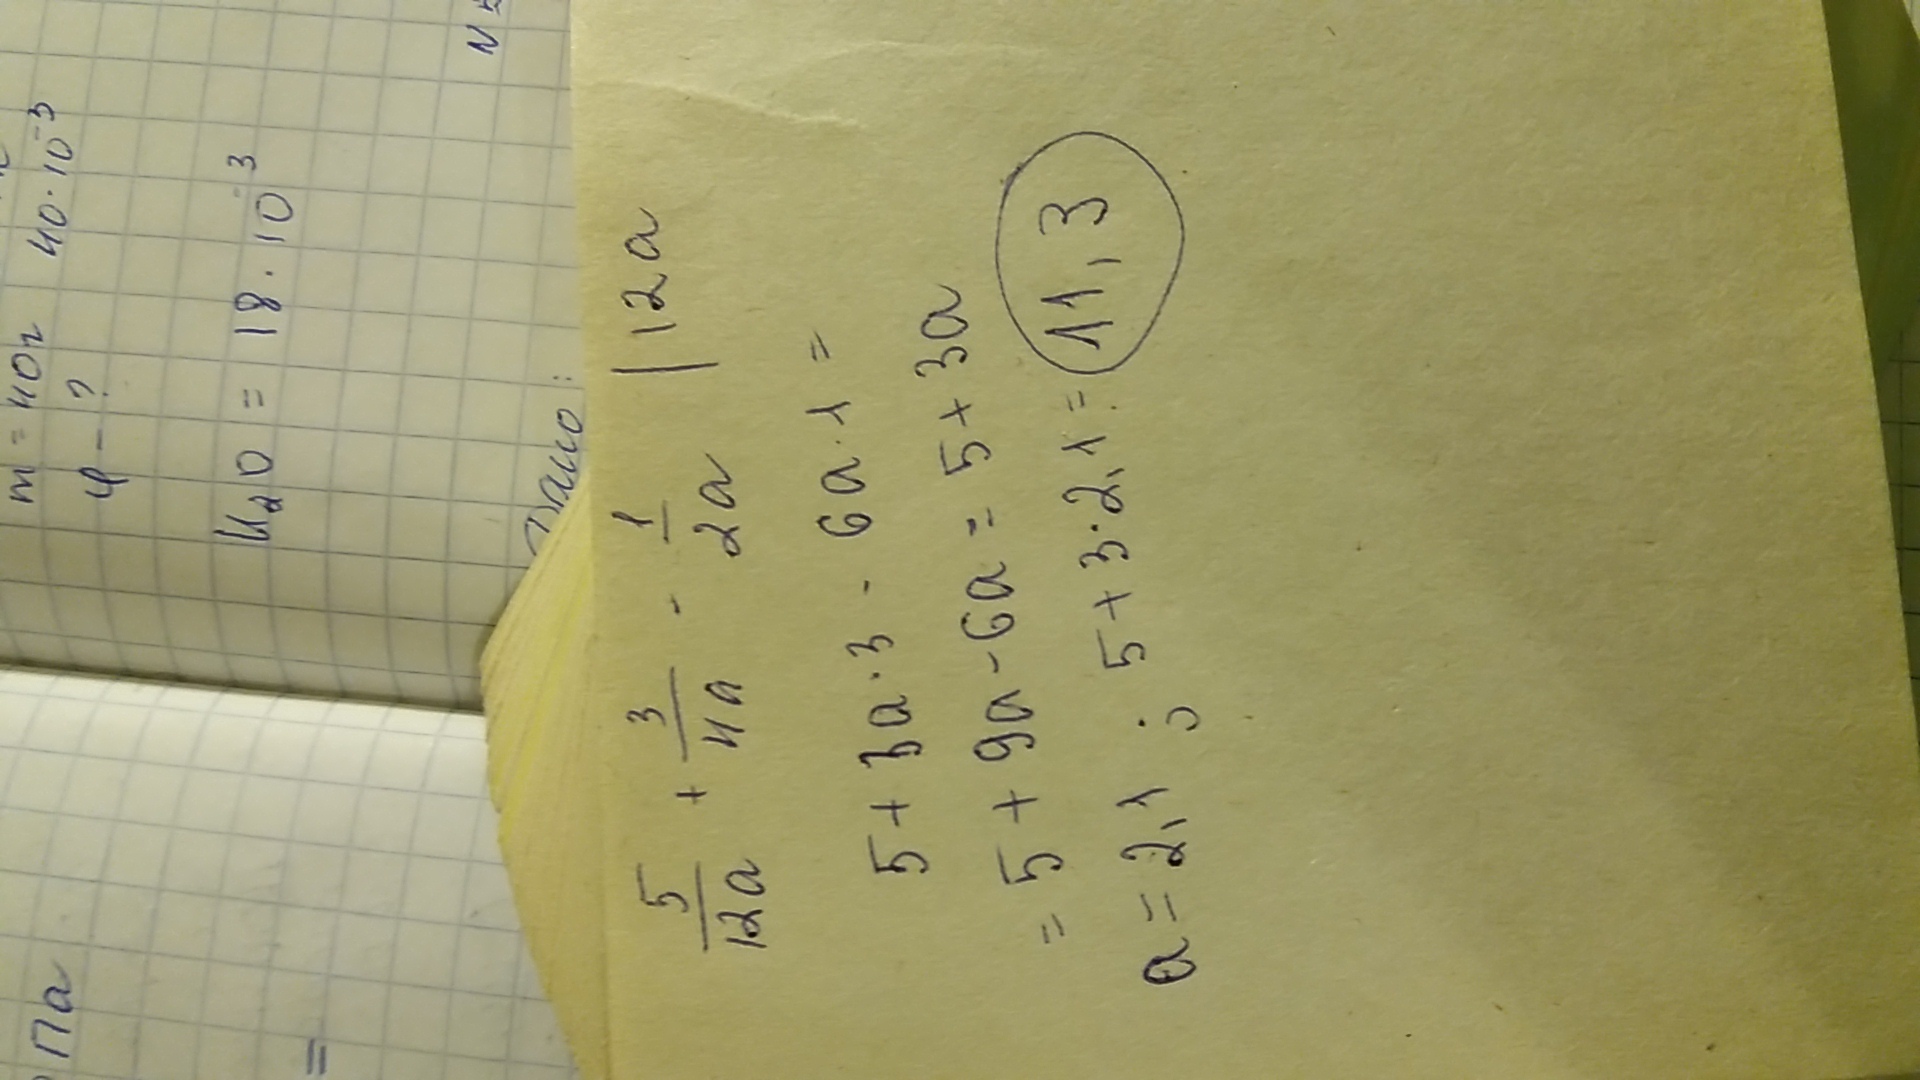 m = 40г 40·10⁻³
φ - ?
H₂O = 18·10⁻³
Дано:
Па
=
5/12a + 3/4a - 1/2a | 12a
5 + 3a·3 - 6a·1 =
= 5 + 9a - 6a = 5 + 3a
a = 2,1 ; 5 + 3·2,1 = 11,3